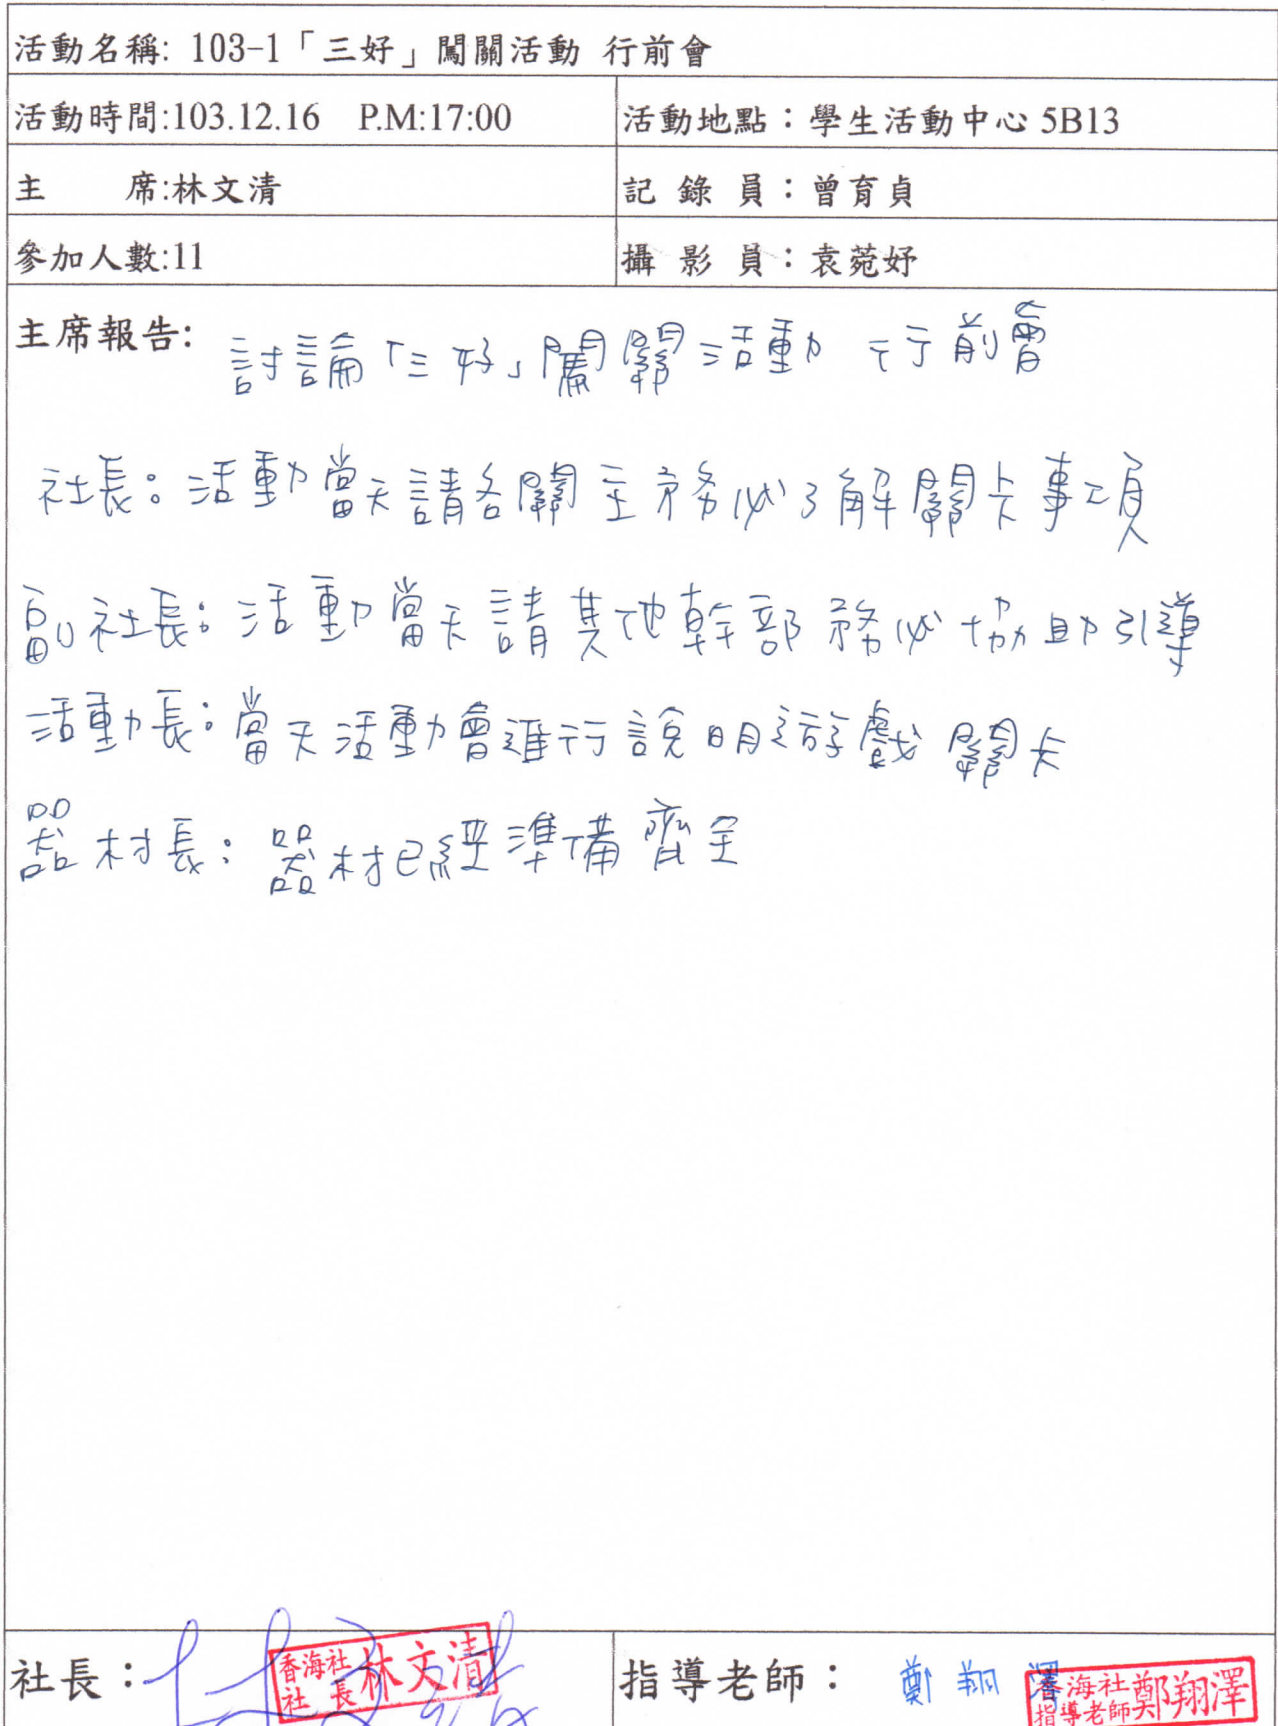 活動名稱: 103-1「三好」闖關活動 行前會
活動時間:103.12.16 P.M:17:00 活動地點：學生活動中心 5B13
主 席:林文清 記 錄 員：曾育貞
參加人數:11 攝 影 員：袁菀妤
主席報告: 討論「三好」闖關活動 行前會
社長：活動當天請各關主務必了解關卡事項
副社長：活動當天請其他幹部務必協助引導
活動長：當天活動會進行說明遊戲關卡
器材長：器材已經準備齊全
社長： 香海社 社長 林文清 指導老師： 鄭翔澤 香海社 指導老師 鄭翔澤